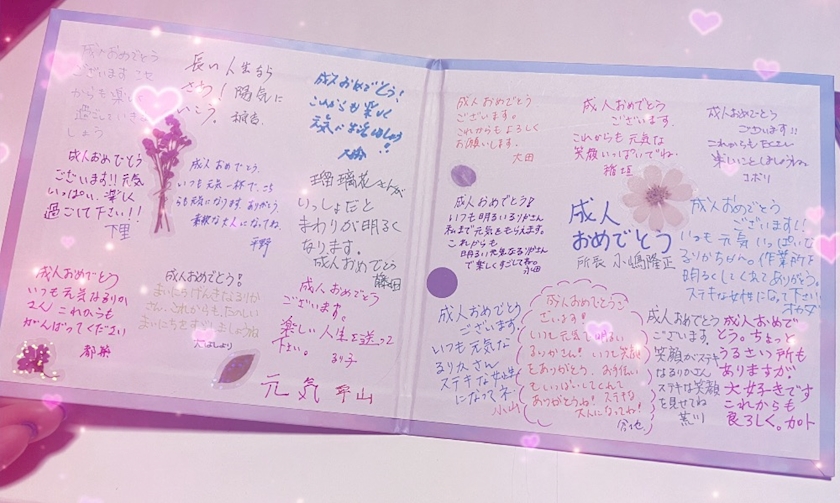 成人おめでとう
ございます
からも楽し
過ごしていき
しょう
長い人生なら
さう!陽気に
いこう。
成人おめでとう!
これからも楽しく
元気に生活しましょう
!!
成人おめでとう
ございます!!元気
いっぱい、楽しく
過ごして下さい!!
下里
成人おめでとう。
いつも元気一杯で、こち
らも元気になります。ありがとう。
素敵な大人になってね。
平野
瑠璃花さんが
いっしょだと
まわりが明るく
なります。
成人おめでとう
藤田
成人おめでとう
いつも元気なるりか
さん これからも
がんばってください
都築
成人おめでとう!
まいにちげんきなるりか
さん、これからも、たのしい
まいにちをすごしましょうね
大はしより
成人おめでとう
ございます。
楽しい人生を送って
下さい。
るり子
元気
成人おめでとう
ございます。
これからもよろしく
お願いします。
太田
成人おめでとう
ございます。
これからも元気な
笑顔いっぱいでね。
稲垣
成人おめでとう
ございます!!
これからもたくさん
楽しいことしましょうね
コボリ
成人おめでとう!
いつも明るいるりさん
私まで元気をもらえます。
これからも
明るい元気なるりかさん
で楽しくすごしてね。
小田
成人
おめでとう
所長 小嶋隆正
成人おめでとう
ございます!!
いつも元気いっぱいな
るりかちゃん。作業所を
明るくしてくれてありがとう。
ステキな女性になって下さい。
オカダ
成人おめでとう
ございます。
いつも元気な
るりかさん
ステキな女性
になってネ
小山
成人おめでとうご
ざいます。
いつも元気で明るい
るりかさん!いつも笑顔
をありがとう。お手伝い
もいっぱいしてくれて
ありがとうね!ステキな
大人になってね!
今池
成人おめでとう
ございます。
笑顔がステキ
なるりかさん
ステキな笑顔
を見せてね
荒川
成人おめで
とう。ちょっと
うるさい所も
ありますが
大好きです
これからも
良ろしく。カト